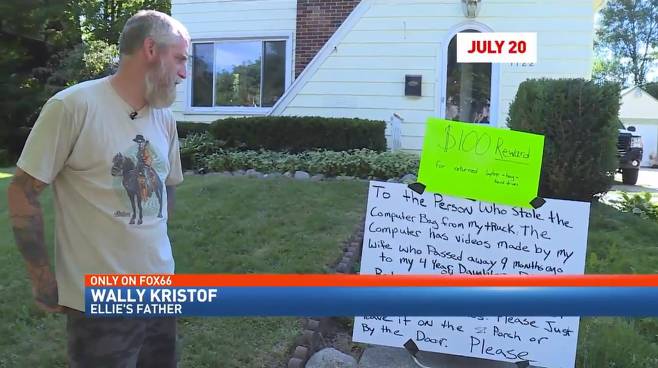 JULY 20
1122
$100 Reward
for returned laptop + bag +
hard drives
To the Person Who Stole the
Computer Bag from my truck. The
Computer has videos made by my
Wife who Passed away 9 months ago
to my 4 Year
ONLY ON FOX66
WALLY KRISTOF
ELLIE'S FATHER
Please Just
leave it on the Porch or
By the Door. Please